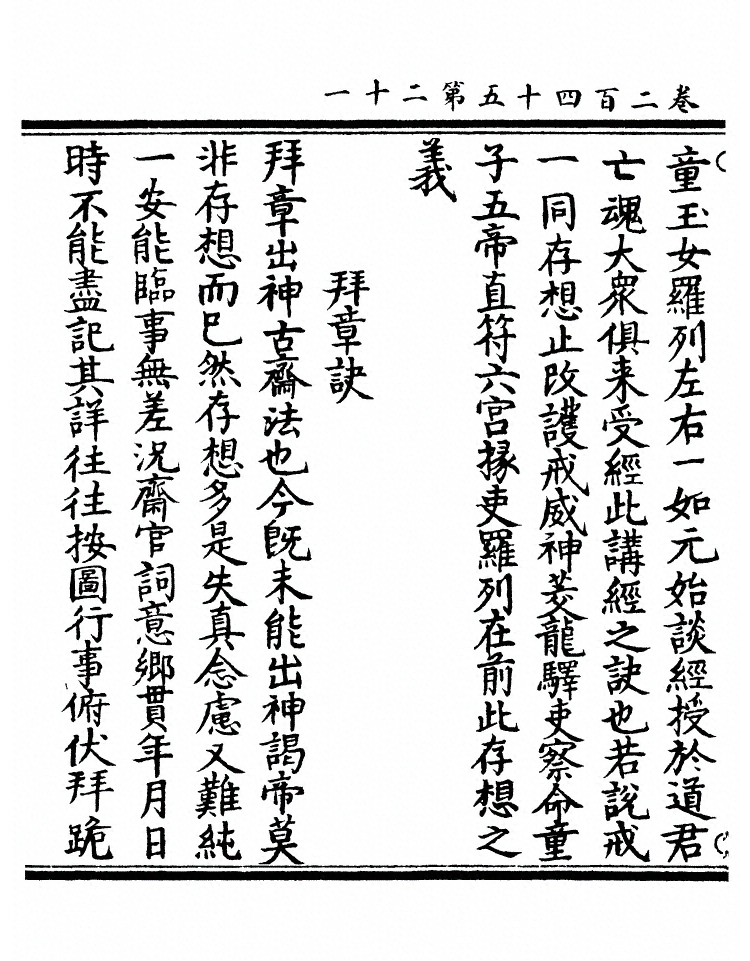 卷二百四十五第二十一
童玉女羅列左右一如元始談經授於道君
亡魂大衆俱来受經此講經之訣也若説戒
一同存想止改護戒威神茭龍驛吏察命童
子五帝直符六宮掾吏羅列在前此存想之
義
拜章訣
拜章出神古齋法也今既未能出神謁帝莫
非存想而已然存想多是失真念慮又難純
一安能臨事無差況齋官詞意鄉貫年月日
時不能盡記其詳往往按圖行事俯伏拜跪